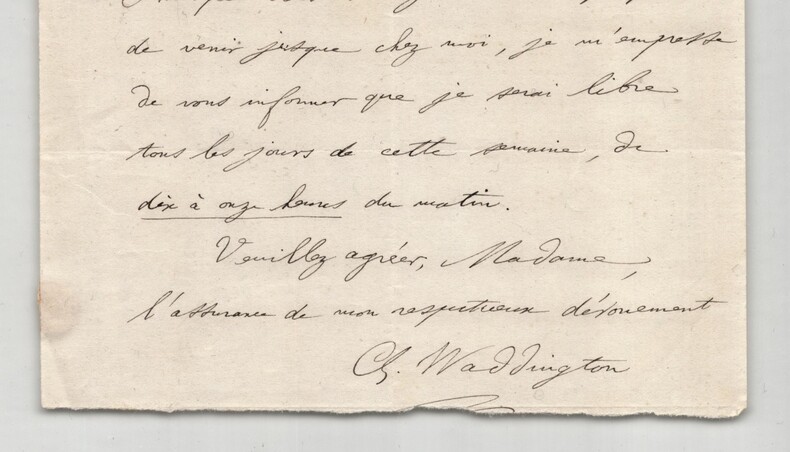 de venir jusque chez moi, je m'empresse
de vous informer que je serai libre
tous les jours de cette semaine, de
dix à onze heures du matin.
Veuillez agréer, Madame,
l'assurance de mon respectueux dévouement
Ch. Waddington